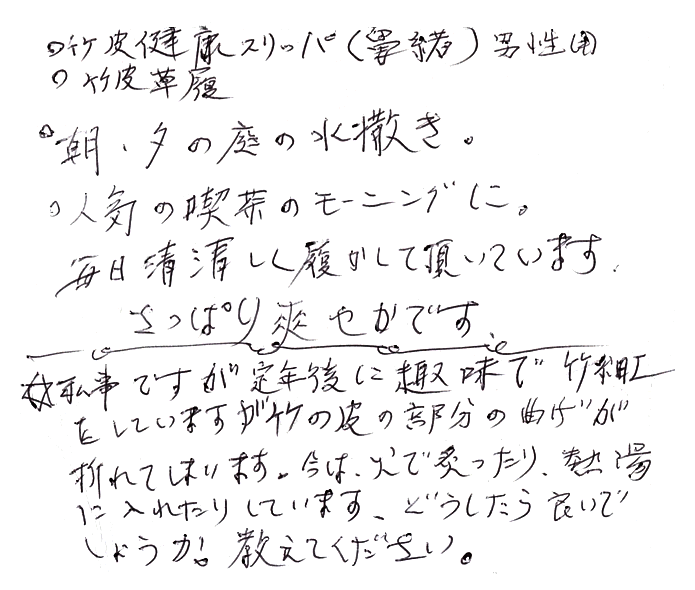 ○竹皮健康スリッパ(鼻緒)男性用
○竹皮草履
○朝・夕の庭の水撒き。
○人気の喫茶のモーニングに。
毎日清清しく履かして頂いています。
さっぱり爽やかです。
☆私事ですが定年後に趣味で竹細工
をしていますが竹の皮の部分の曲げが
折れてしまります。今は、火で炙ったり、熱湯
に入れたりしています、どうしたら良いで
しょうか。教えてください。